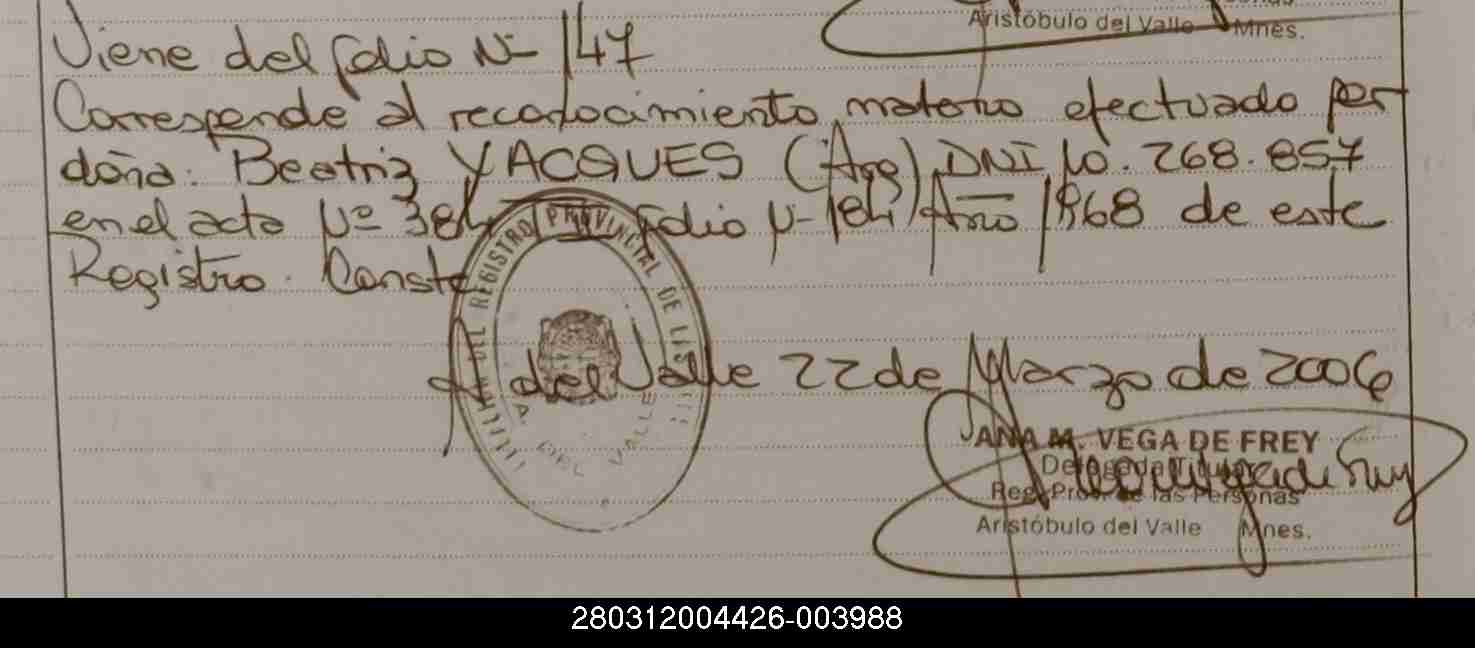 Aristóbulo del Valle Mnes.
Viene del folio Nº 147
Corresponde al reconocimiento materno efectuado por
doña: Beatriz YACQUES (Arg) DNI 10.268.857
en el acta Nº 384 folio Nº 184 Año 1968 de este
Registro. Conste
DEL REGISTRO PROVINCIAL DE LAS
A. DEL VALLE
A del Valle 22 de Marzo de 2006
ANA M. VEGA DE FREY
Delegada Titular
Reg. Prov. de las Personas
Aristóbulo del Valle Mnes.
280312004426-003988